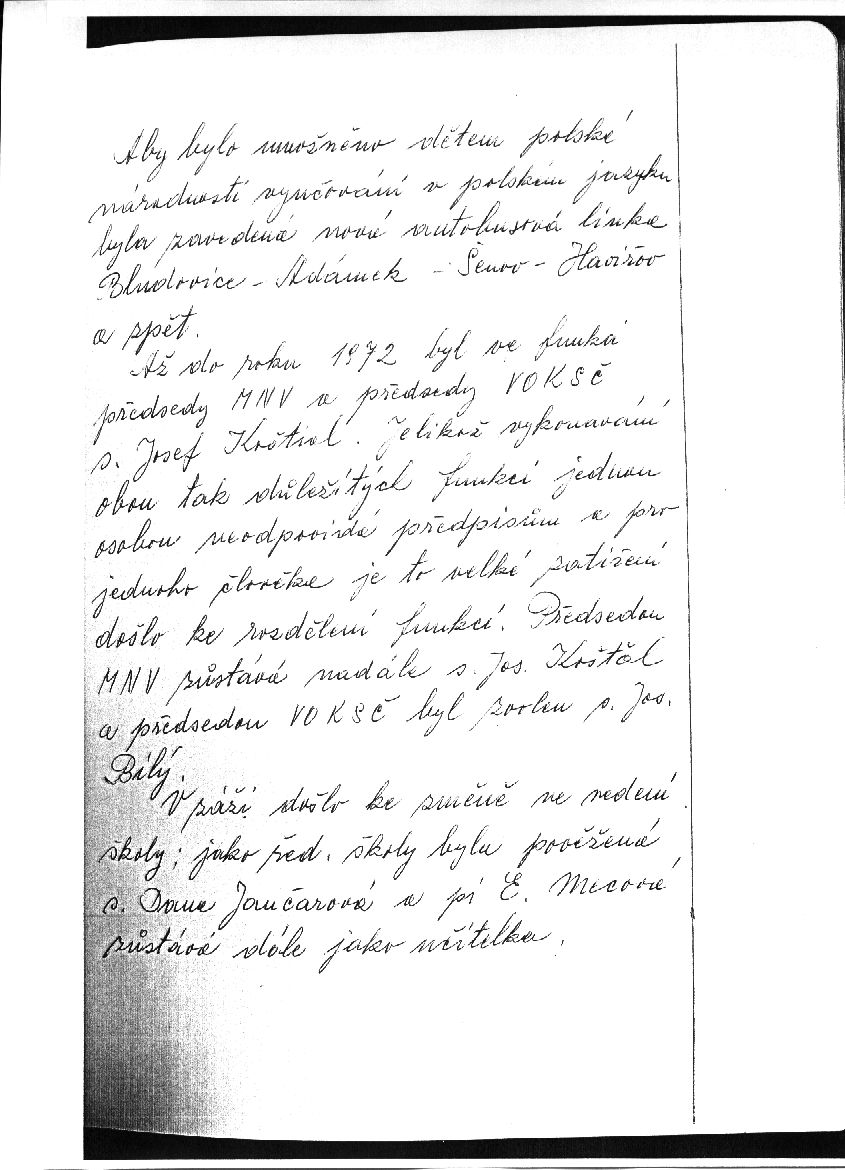 Aby bylo umožněno dětem polské
národnosti vyučování v polském jazyku
byla zavedená nová autobusová linka
Bludovice - Adámek - Šenov - Havířov
a zpět.
Až do roku 1972 byl ve funkci
předsedy MNV a předsedy VOKSČ
s. Josef Koštial. Jelikož vykonavání
obou tak důležitých funkcí jednou
osobou neodpovídá předpisům a pro
jednoho člověka je to velké zatížení
došlo ke rozdělení funkcí. Předsedou
MNV zůstává nadále s. Jos. Koštál
a předsedou VOKSČ byl zvolen s. Jos.
Bílý.
V záři došlo ke změně ve vedení
školy; jako řed. školy byla pověřená
s. Dana Jančarová a pí E. Mecová
zůstává dále jako učitelka.